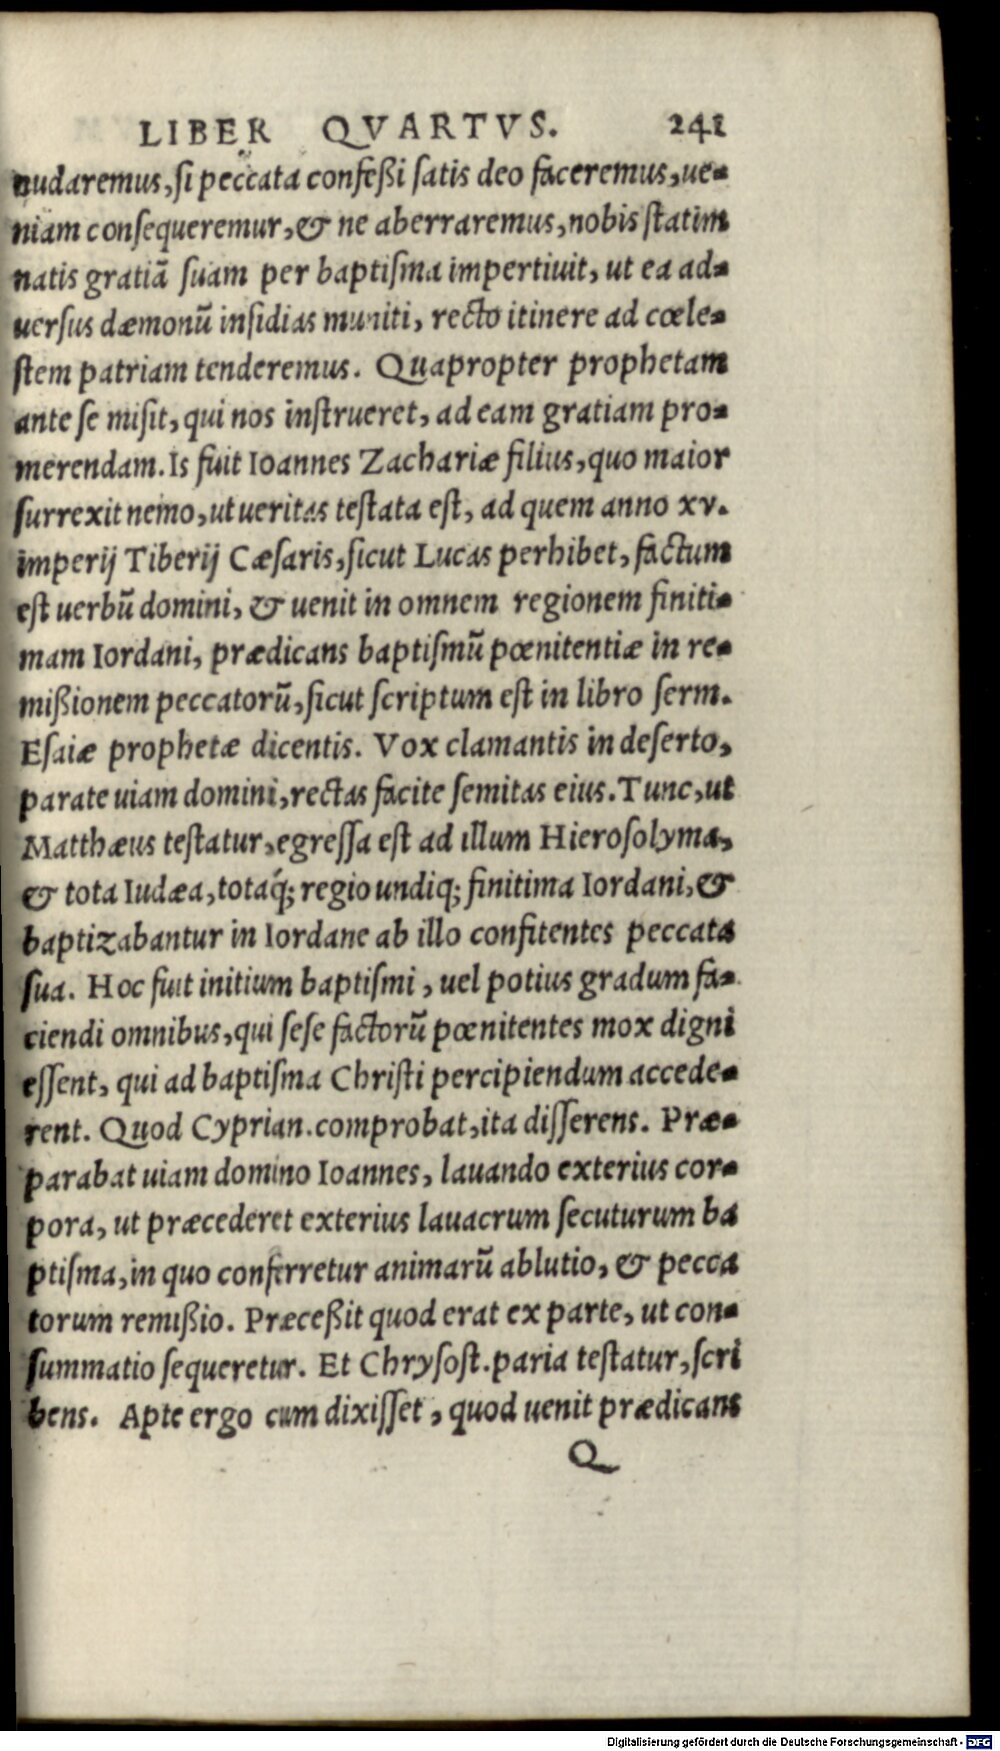 LIBER QVARTVS. 241
nudaremus, si peccata confeßi satis deo faceremus, ue-
niam consequeremur, & ne aberraremus, nobis statim
natis gratiã suam per baptisma impertiuit, ut ea ad-
uersus dæmonũ insidias muniti, recto itinere ad cœle-
stem patriam tenderemus. Quapropter prophetam
ante se misit, qui nos instrueret, ad eam gratiam pro-
merendam. Is fuit Ioannes Zachariæ filius, quo maior
surrexit nemo, ut ueritas testata est, ad quem anno xv.
imperij Tiberij Cæsaris, sicut Lucas perhibet, factum
est uerbũ domini, & uenit in omnem regionem finiti-
mam Iordani, prædicans baptismũ pœnitentiæ in re-
mißionem peccatorũ, sicut scriptum est in libro serm.
Esaiæ prophetæ dicentis. Vox clamantis in deserto,
parate uiam domini, rectas facite semitas eius. Tunc, ut
Matthæus testatur, egressa est ad illum Hierosolyma,
& tota Iudæa, totaq́; regio undiq; finitima Iordani, &
baptizabantur in Iordane ab illo confitentes peccata
sua. Hoc fuit initium baptismi, uel potius gradum fa-
ciendi omnibus, qui sese factorũ pœnitentes mox digni
essent, qui ad baptisma Christi percipiendum accede-
rent. Quod Cyprian. comprobat, ita disserens. Præ-
parabat uiam domino Ioannes, lauando exterius cor-
pora, ut præcederet exterius lauacrum secuturum ba
ptisma, in quo conferretur animarũ ablutio, & pecca
torum remißio. Præceßit quod erat ex parte, ut con-
summatio sequeretur. Et Chrysost. paria testatur, scri
bens. Apte ergo cum dixisset, quod uenit prædicans
Q
Digitalisierung gefördert durch die Deutsche Forschungsgemeinschaft - DFG